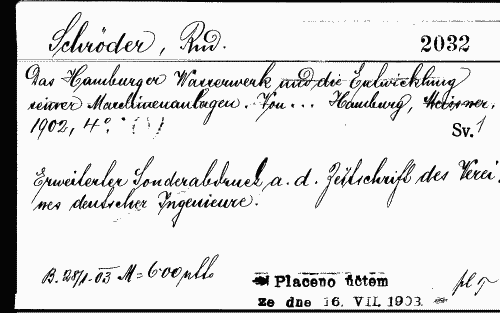 Schröder, Rud.
2032
Das Hamburger Wasserwerk und die Entwicklung
seiner Maschinenanlagen. Von... Hamburg, Meissner.
1902, 4°.
Sv. 1
Erweiterter Sonderabdruck a. d. Zeitschrift des Verei-
nes deutscher Ingenieure.
B. 28/1.03 M = 6.00
Placeno účtem
ze dne 16. VII. 1903.